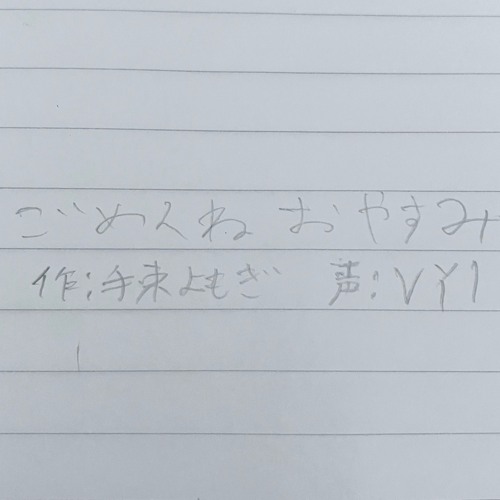 ごめんね おやすみ
作:手束よもぎ 声:VY1